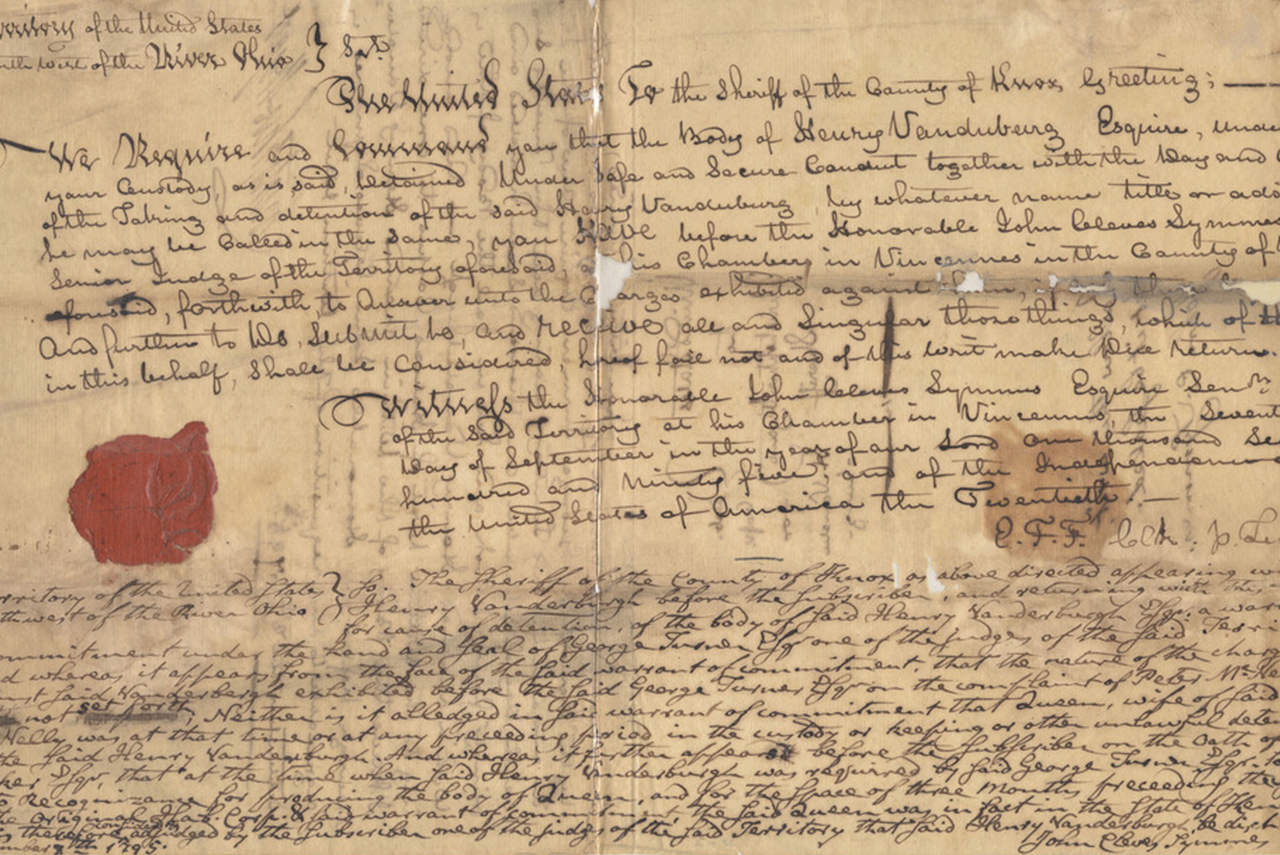 of the United States
west of the River Ohio } Sct.
The United States To the Sheriff of the County of Knox Greeting;
We Require and Command you that the Body of Henry Vanduburg Esquire, unde
your Custody, as is said, detained, Under Safe and Secure Conduct together with the Day and
of the Taking and detention of the said Henry Vanduburg by whatever name title or add
he may be Called in the Same, you Have before the Honorable John Cleves Symmes
Senior Judge of the Territory aforesaid, a his Chambers in Vincennes in the County of
aforesaid, forthwith, to Answer unto the C arges exhibited against
And further to Do, Submit to, and receive all and Singular those things, which of
in this behalf, Shall be Considered, hereof fail not and of this writ make Due return.
Witness the Honorable John Cleves Symmes Esquire Senr
of the Said Territory at his Chamber in Vincennes, the Sevent
Day of September in the year of our Lord one thousand Se
hundred and Ninety five and of the Independence
the United States of America the Twentieth. —
E.T.F. Clk. p.
rritory of the United States } Ss. The Sheriff of the County of Knox as above directed appearing
th west of the River Ohio } Henry Vanderburgh before the Subscriber, and returning with this
for cause of detention, of the body of said Henry Vanderburgh Esqr. a warr
ommitment under the hand and Seal of George Turner Esqr one of the judges of the Said Terri
d whereas it appears from the face of the Said warrant of commitment, that the nature of the charge
nst Said Vanderbergh exhibited before the Said George Turner Esqr on the complaint of Peter
not set forth, Neither is it alledged in Said warrant of commitment that Queen, wife of Said
Nelly was at that time or at any preceeding period in the custody or keeping or other unlawful deten
the Said Henry Vanderburgh. And whereas it further appears before the Subscriber on the Oath of
Esqr. that at the time when Said Henry Vanderburgh was required by Said George Turner Esqr. to
Recognizance for producing the body of Queen, and for the Space of three Months preceeding the
Original Corps. & Said warrant of commitment, the Said Queen was in fact in the State of
is therefore adjudged by the Subscriber one of the judges of the Said Territory that Said Henry Vanderburgh, be disch
1795. John Cleves Symmes